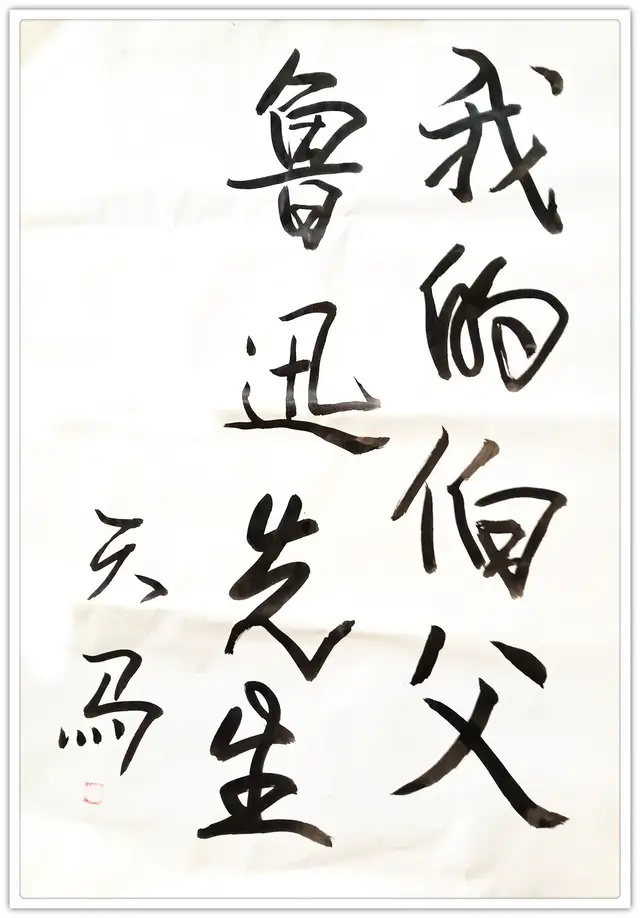 我的伯父
鲁迅先生
天马